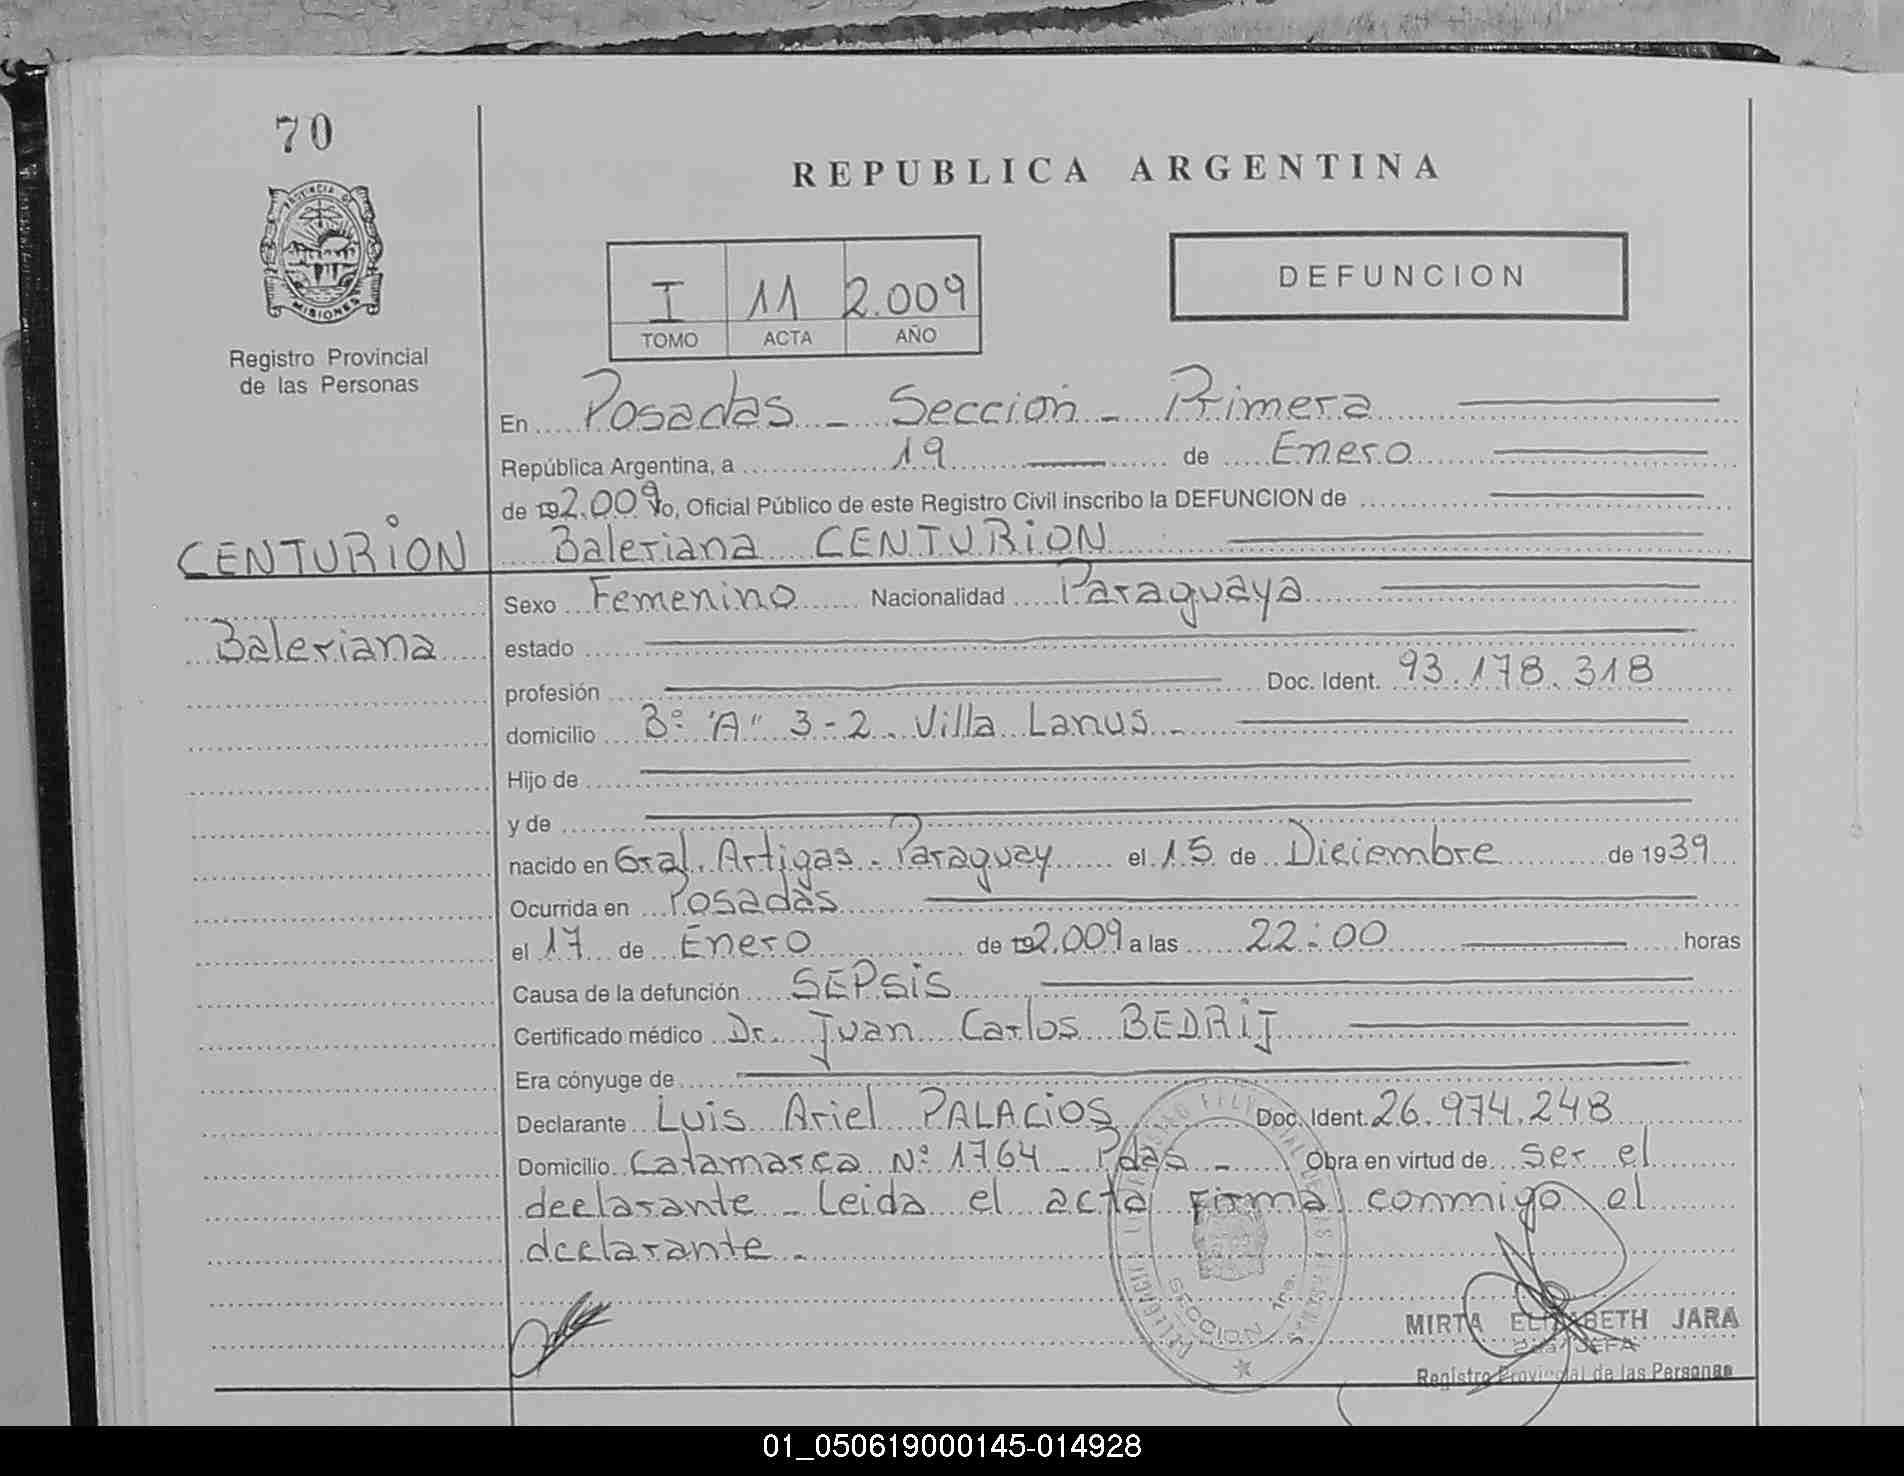 70
PROVINCIA DE
MISIONES
Registro Provincial
de las Personas
REPUBLICA ARGENTINA
I 11 2.009
TOMO ACTA AÑO
DEFUNCION
En Posadas - Sección - Primera
República Argentina, a 19 de Enero
de 192.009 Yo, Oficial Público de este Registro Civil inscribo la DEFUNCION de
CENTURIóN Baleriana CENTURION
Sexo Femenino Nacionalidad Paraguaya
Baleriana
estado
profesión Doc. Ident. 93.178.318
domicilio Bº "A" 3-2. Villa Lanus.-
Hijo de
y de
nacido en Gral. Artigas - Paraguay el 15 de Diciembre de 1939
Ocurrida en Posadas
el 17 de Enero de 192.009 a las 22:00 horas
Causa de la defunción SEPSIS
Certificado médico Dr. Juan Carlos BEDRIJ
Era cónyuge de
Declarante Luis Ariel PALACIOS Doc. Ident. 26.974.248
Domicilio Catamarca Nº 1764 - Pdas - Obra en virtud de ser el
declarante - Leida el acta firma conmigo el
declarante -
SECCION 1ra.
MIRTA ELIZABETH JARA
JEFA
Registro Provincial de las Personas
01_050619000145-014928